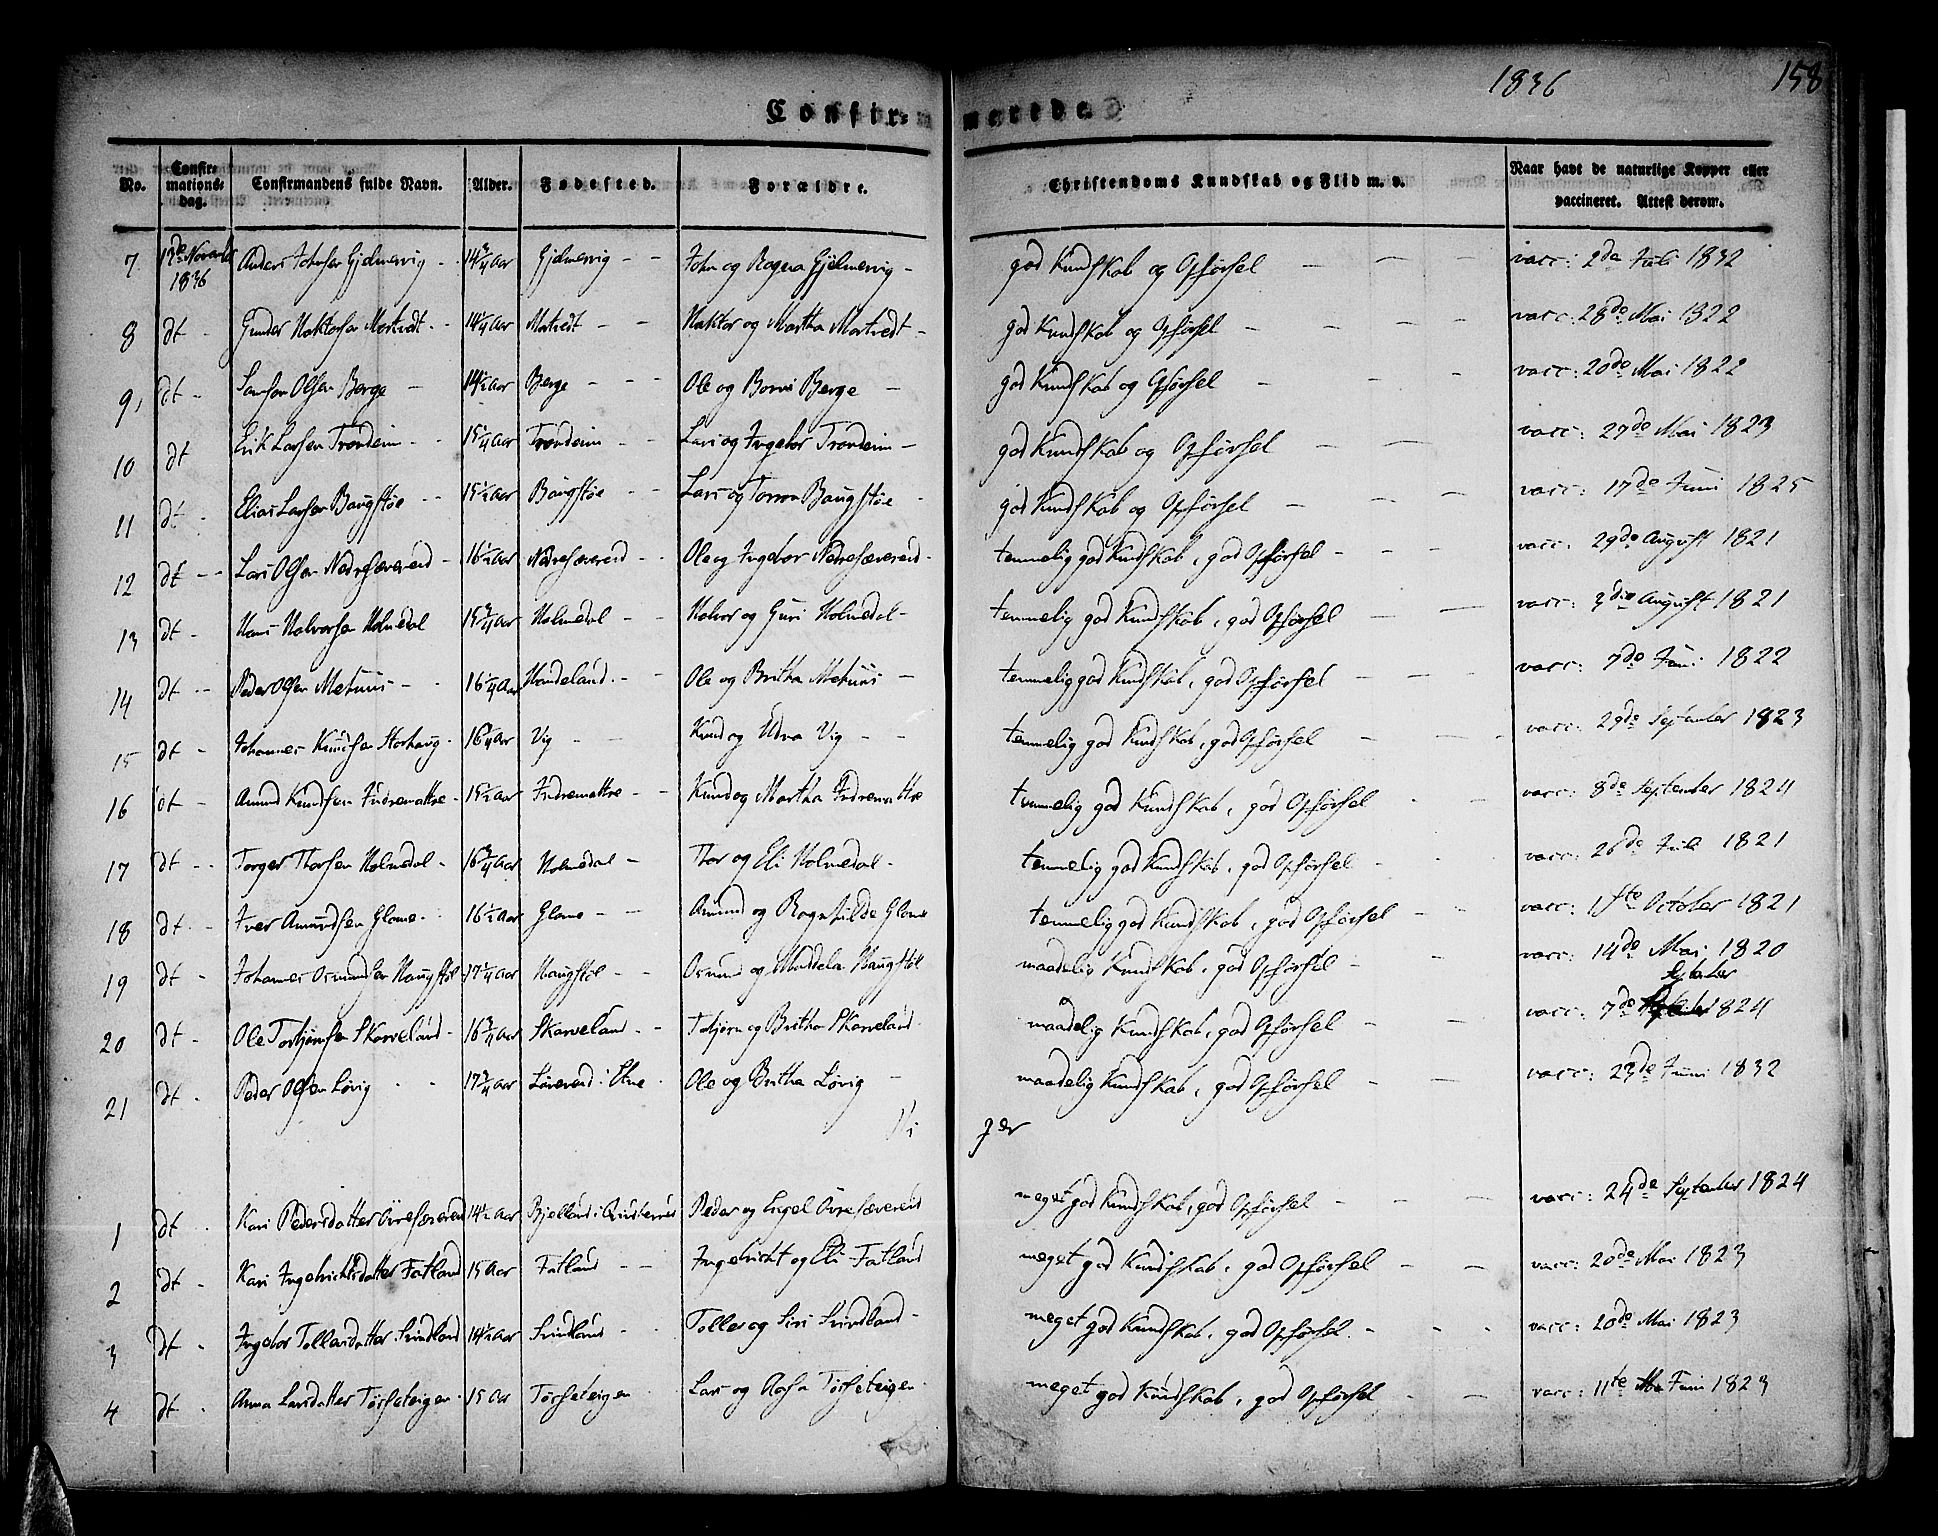 1836 158
Confirmerede.
No. Confirmations-dag. Confirmandens fulde Navn. Alder. Fødested. Forældre. Christendoms Kundskab og Flid m. v. Naar havt de naturlige Kopper eller vaccineret. Attest derom.
7 13de Novembr 1836 Anders Johnsen Gjelmervig 14 3/4 Aar Gjelmervig John og Ragna Gjelmervig god Kundskab og Opførsel vacc: 2den Juli 1832
8 dt Gunder Haktorsen Mortvedt 14 1/4 Aar Mortvedt Haktor og Martha Mortvedt god Kundskab og Opførsel vacc: 28de Mai 1822
9, dt Samson Olsen Berge 14 1/2 Aar Berge Ole og Berge god Kundskab og Opførsel vacc: 20de Mai 1822
10 dt Erik Larsen Trondeim 15 1/4 Aar Trondeim Lars og Ingebor Trondeim god Kundskab og Opførsel vacc: 27de Mai 1823
11 dt Elias Larsen Baugstøe 15 1/2 Aar Baugstøe Lars og Baugstøe god Kundskab og Opførsel vacc: 17de Juni 1825
12 dt Lars Olsen Nedresævereid 16 1/2 Aar Nedresævereid Ole og Ingebor Nedresævereid temmelig god Kundskab, god Opførsel vacc: 29de August 1821
13 dt Hans Halvorsen Holmedal 15 3/4 Aar Holmedal Halvor og Guri Holmedal temmelig god Kundskab, god Opførsel vacc: 3die August 1821
14 dt Peder Olsen Mehuus 16 1/4 Aar Handeland Ole og Britha Mehuus temmelig god Kundskab, god Opførsel vacc: 7de Juni 1822
15 dt Johannes Knudsen Storhaug 16 Aar Vig Knud og Vig temmelig god Kundskab, god Opførsel vacc: 29de September 1823
16 dt Amund Knudsen Indrematre 15 1/2 Aar Indrematre Knud og Martha Indrematre temmelig god Kundskab, god Opførsel vacc: 8de September 1824
17 dt Torger Thorsen Holmedal 16 3/4 Aar Holmedal Thor og Eli Holmedal temmelig god Kundskab, god Opførsel vacc: 26de Juli 1821
18 dt Iver Amundsen Glame 16 1/2 Aar Glame Amund og Ragnhilde Glame temmelig god Kundskab, god Opførsel vacc: 1ste October 1821
19 dt Johannes Osmundsen Haugstøl 17 1/4 Aar Haugstøl Osmund og Haugstøl maadelig Kundskab, god Opførsel vacc: 14de Mai 1820
20 dt Ole Torbjørnsen Skarveland 16 3/4 Aar Skarveland Tobjørn og Britha Skarveland maadelig Kundskab, god Opførsel vacc: 7de September 1824
21 dt Peder Olsen Løvig 17 3/4 Aar Ole og Britha Løvig maadelig Kundskab, god Opførsel vacc: 23de Juni 1832
Piger
1 dt Kari Pedersdatter Øvresævereid 14 1/2 Aar Bjelland i Qvindherred Peder og Engel Øvresævereid meget god Kundskab, god Opførsel vacc: 24de September 1824
2 dt Kari Ingebrichtsdatter Fatland 15 Aar Fatland Ingebricht og Eli Fatland meget god Kundskab, god Opførsel vacc: 20de Mai 1823
3 dt Ingebor Tollersdatter Svindland 14 1/2 Aar Svindland Toller og Siri Svindland meget god Kundskab, god Opførsel vacc: 20de Mai 1823
4 dt Anna Larsdatter Tørseteigen 15 Aar Tørseteigen Lars og Aasa Tørseteigen meget god Kundskab, god Opførsel vacc: 11te Juni 1823